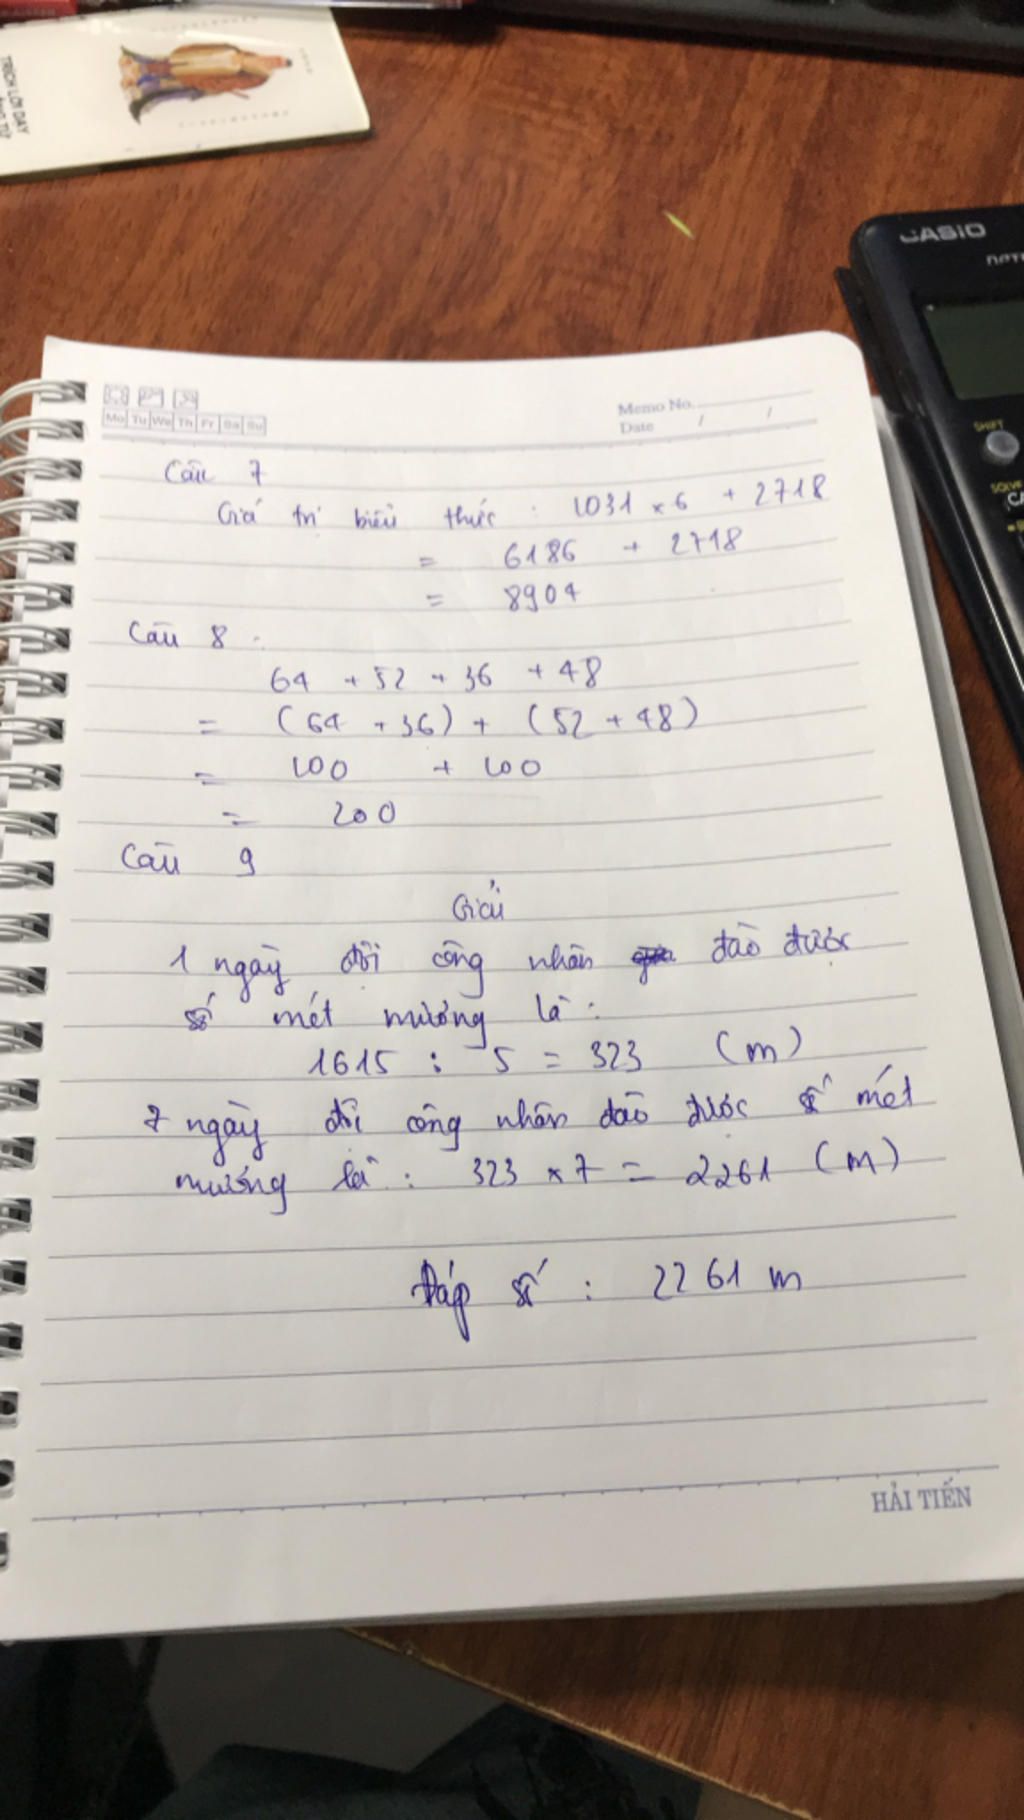 TRÍCH LỜI DẠY
CASIO
SHIFT
SOLVE
Mo Tu We Th Fr Sa Su
Memo No.
Date / /
Câu 7
Giá trị biểu thức : 1031 × 6 + 2718
= 6186 + 2718
= 8904
Câu 8 :
64 + 52 + 36 + 48
= (64 + 36) + (52 + 48)
= 100 + 100
= 200
Câu 9
Giải
1 ngày đội công nhân đào được
số mét mương là :
1615 : 5 = 323 (m)
7 ngày đội công nhân đào được số mét
mương là : 323 × 7 = 2261 (m)
Đáp số : 2261 m
HẢI TIẾN